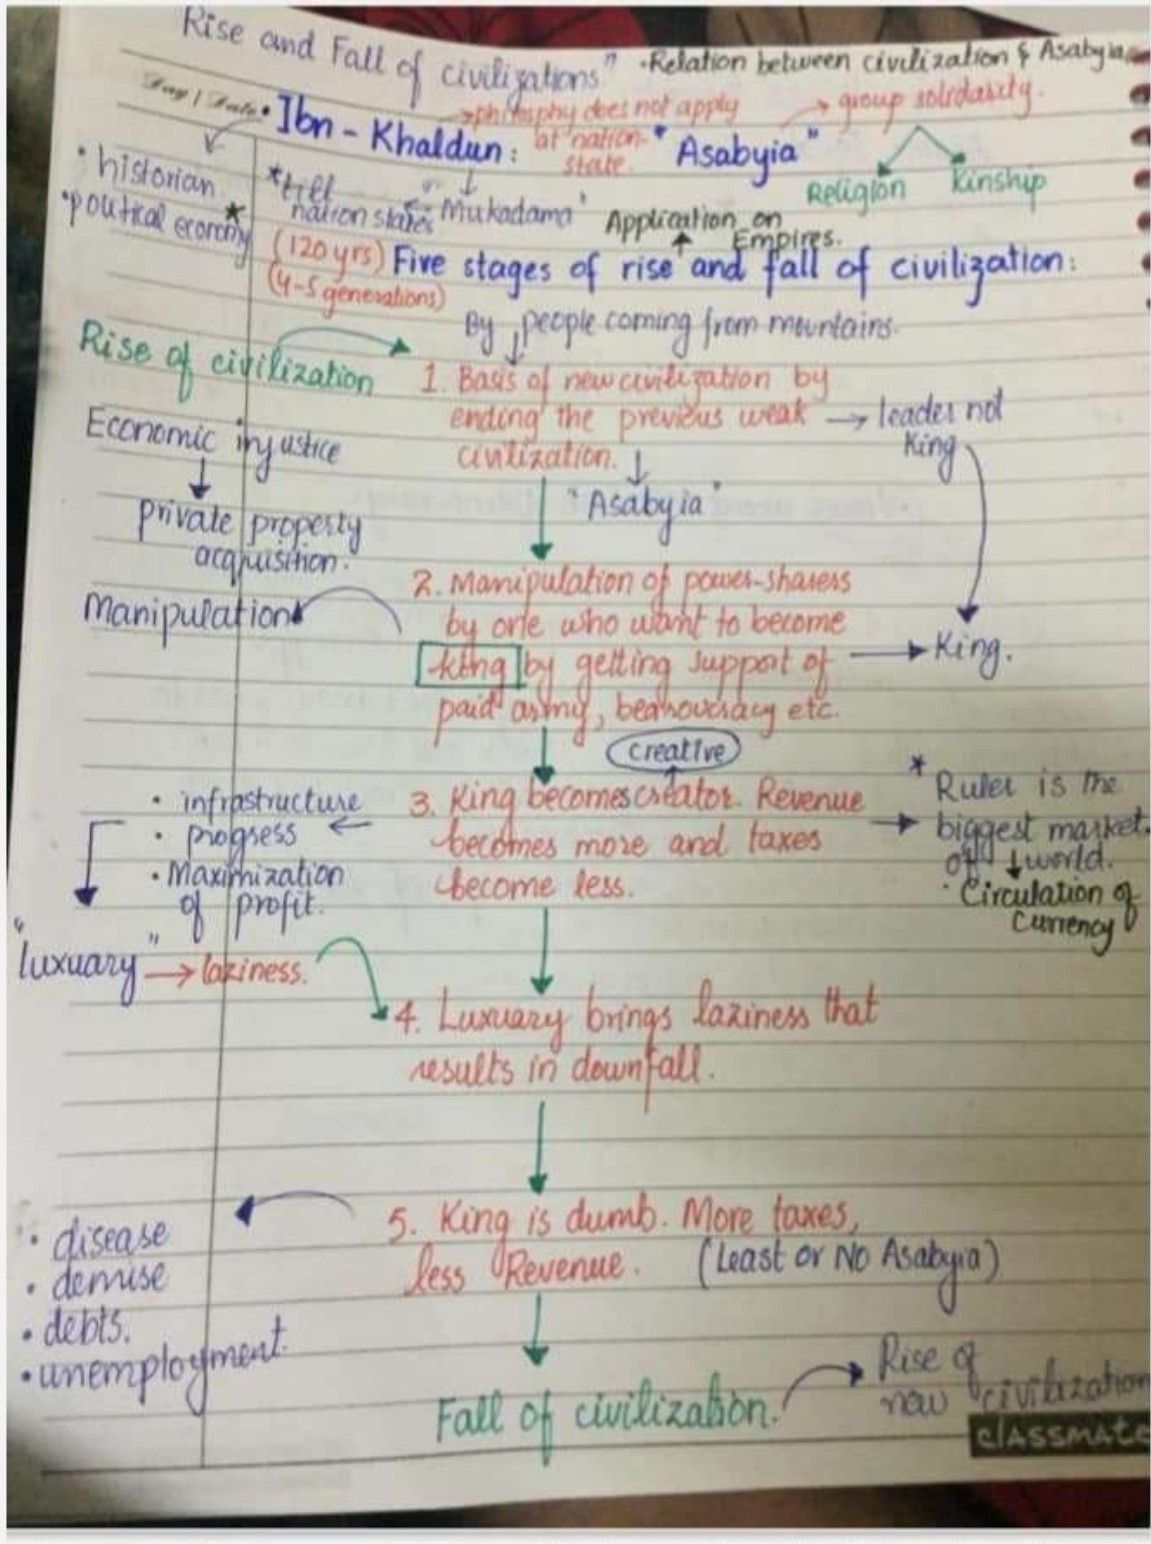 Rise and Fall of civilizations" • Relation between civilization & Asabyia
Day / Date
• Ibn - Khaldun: → philosphy does not apply
at nation-
state.
"Asabyia" → group soledarity.
Religion Kinship
• historian
• political economy
* till
nation states
Mukadama'
Application on
Empires.
(120 yrs)
(4-5 generations)
Five stages of rise and fall of civilization:
By people coming from mountains.
Rise of civilization
1. Basis of new civilization by
ending the previous weak → leader not
civilization.
King
"Asabyia"
Economic injustice
private property
acquisition.
Manipulation
2. Manipulation of power-sharers
by one who want to become
king by getting support of → King.
paid army, bearoucracy etc.
creative
• infrastructure
• progress
• Maximization
of profit.
3. King becomes creator. Revenue
becomes more and taxes
become less.
* Ruler is the
biggest market
of world.
• Circulation of
Currency
"luxuary" → laziness.
4. Luxuary brings laziness that
results in downfall.
5. King is dumb. More taxes,
less Revenue. (Least or No Asabyia)
• disease
• demise
• debts.
• unemployment.
Fall of civilization.
Rise of
new civilization
classmate